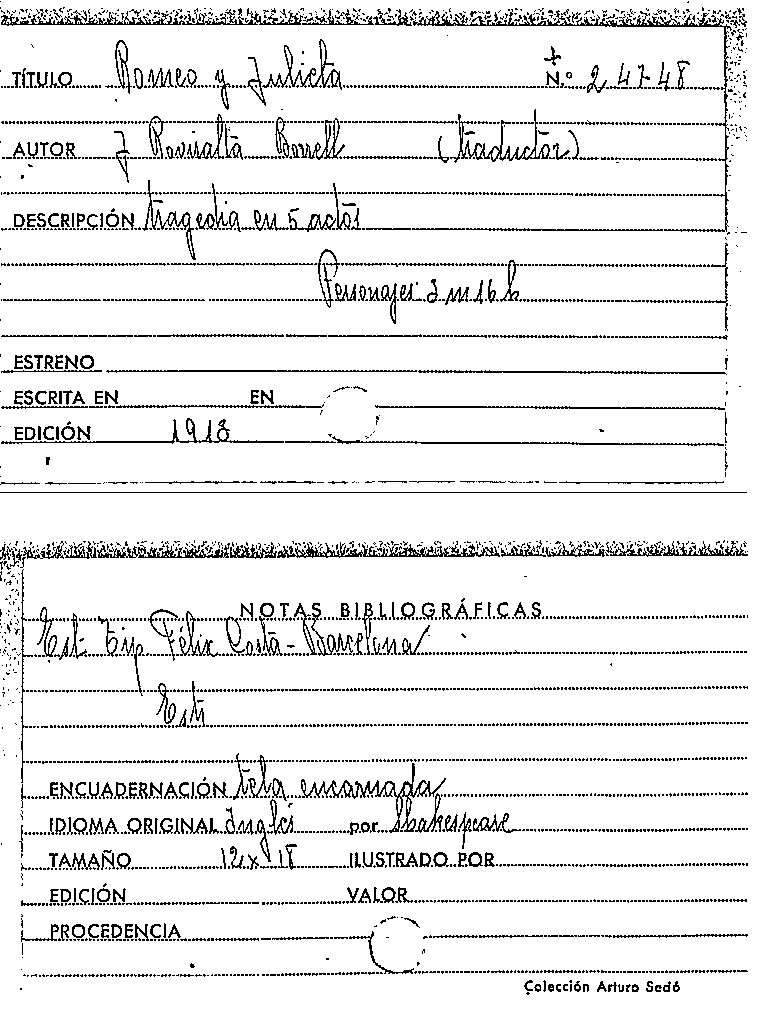 TÍTULO Romeo y Julieta N.º 24748
AUTOR J Roviralta Borrell (traductor)
DESCRIPCIÓN tragedia en 5 actos
Personajes 3 m 16 h
ESTRENO
ESCRITA EN EN
EDICIÓN 1918
NOTAS BIBLIOGRÁFICAS
Est. Tip Félix Costa - Barcelona
Esti
ENCUADERNACIÓN tela encarnada
IDIOMA ORIGINAL Inglés por Shakespeare
TAMAÑO 12 x 18 ILUSTRADO POR
EDICIÓN VALOR
PROCEDENCIA
Colección Arturo Sedó